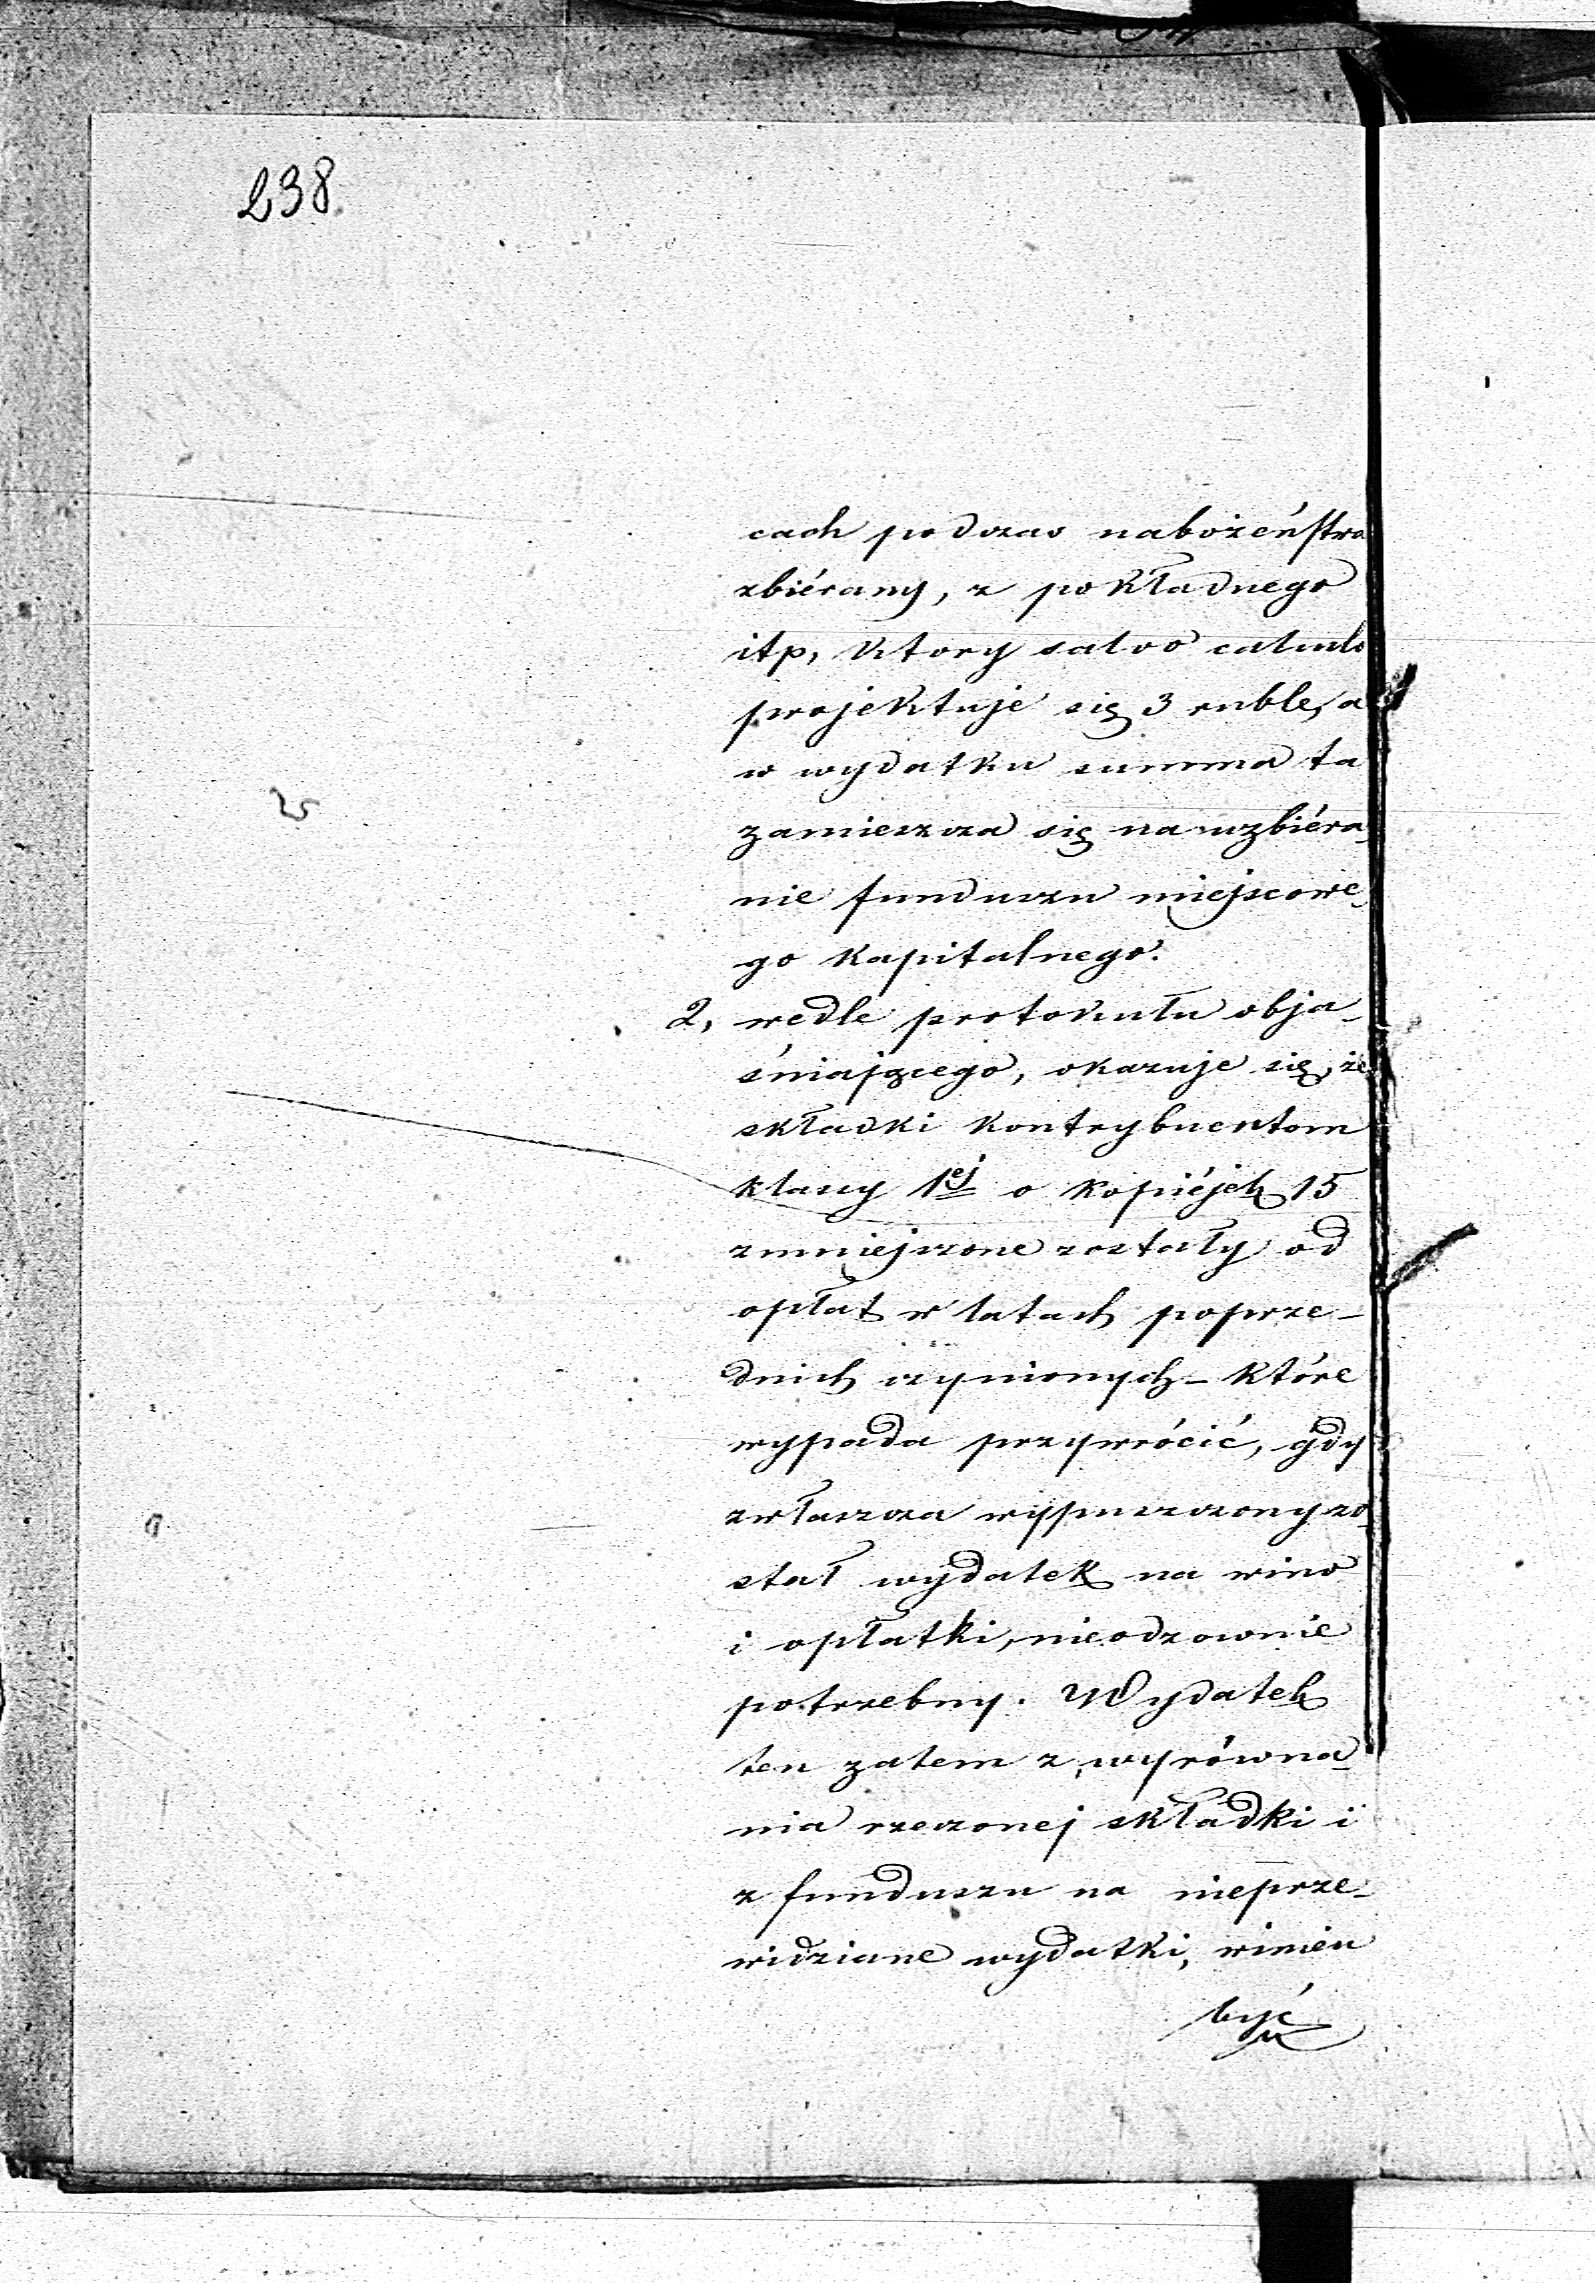 238
cach podczas nabożeństwa
zbiérany, z pokładnego
itp, ktory salvo calculo
projektuje się 3 ruble, a
w wydatku summa ta
zamieszcza się na uzbiéra_
nie funduszu miejscowe_
go kapitalnego.
2, wedle protokułu obja_
śniającego, okazuje się, że
składki kontrybuentom
klassy 1ej o kopiéjek 15
zmniejszone zostały od
opłat w latach poprze_
dnich czynionych_ które
wypada przywrócić, gdy
zwłaszcza wypuszczony zo_
stał wydatek na wino
i opłatki, nieodzownie
potrzebny. Wydatek
ten zatem z wyrówna_
nia rzeczonej składki i
z funduszu na nieprze_
widziane wydatki, winien
być